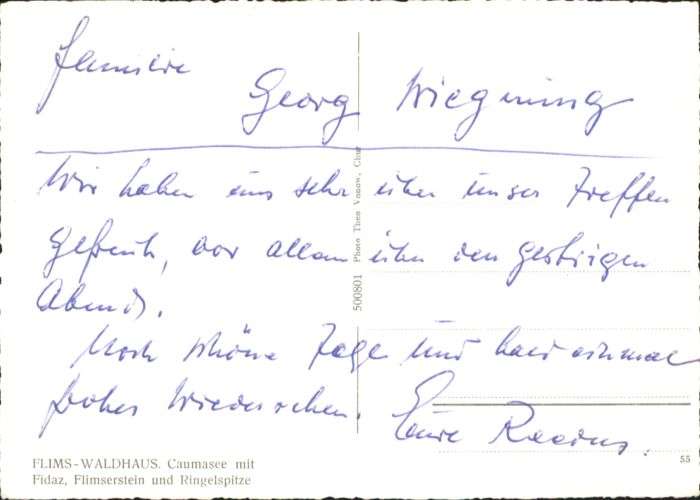 Familie
Georg Wiegming
Wir haben uns sehr über unser Treffen
gefreut, vor allem über den gestrigen
Abend.
Noch schöne Tage und bald einmal
frohes Wiedersehen.
Eure
500801 Photo Theo Vonow, Chur
FLIMS-WALDHAUS. Caumasee mit
Fidaz, Flimserstein und Ringelspitze
55